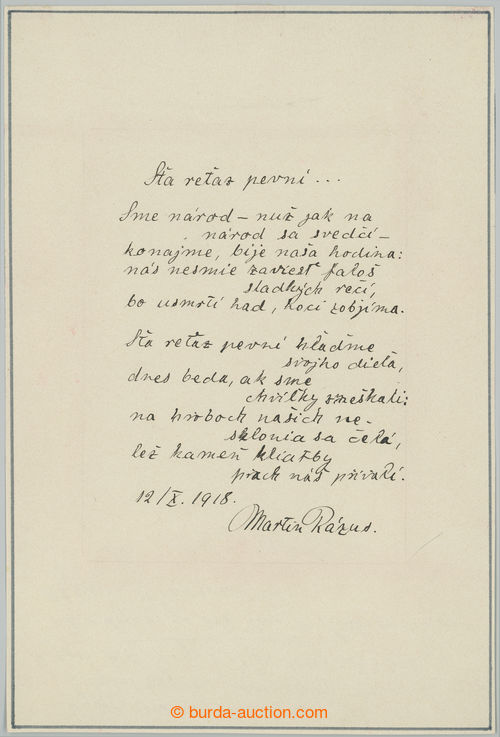 Sťa reťaz pevní...
Sme národ – nuž jak na
národ sa svedčí –
konajme, bije naša hodina:
nás nesmie zaviesť faloš
sladkých rečí,
bo usmrtí had, hoci zobjíma.
Sťa reťaz pevní hľaďme
svojho diela,
dnes beda, ak sme
chvíľky zmeškali:
na hroboch našich ne-
sklonia sa čelá,
lež kameň kliatby
prach náš privalí.
12/X. 1918.
Martin Rázus.
© burda-auction.com